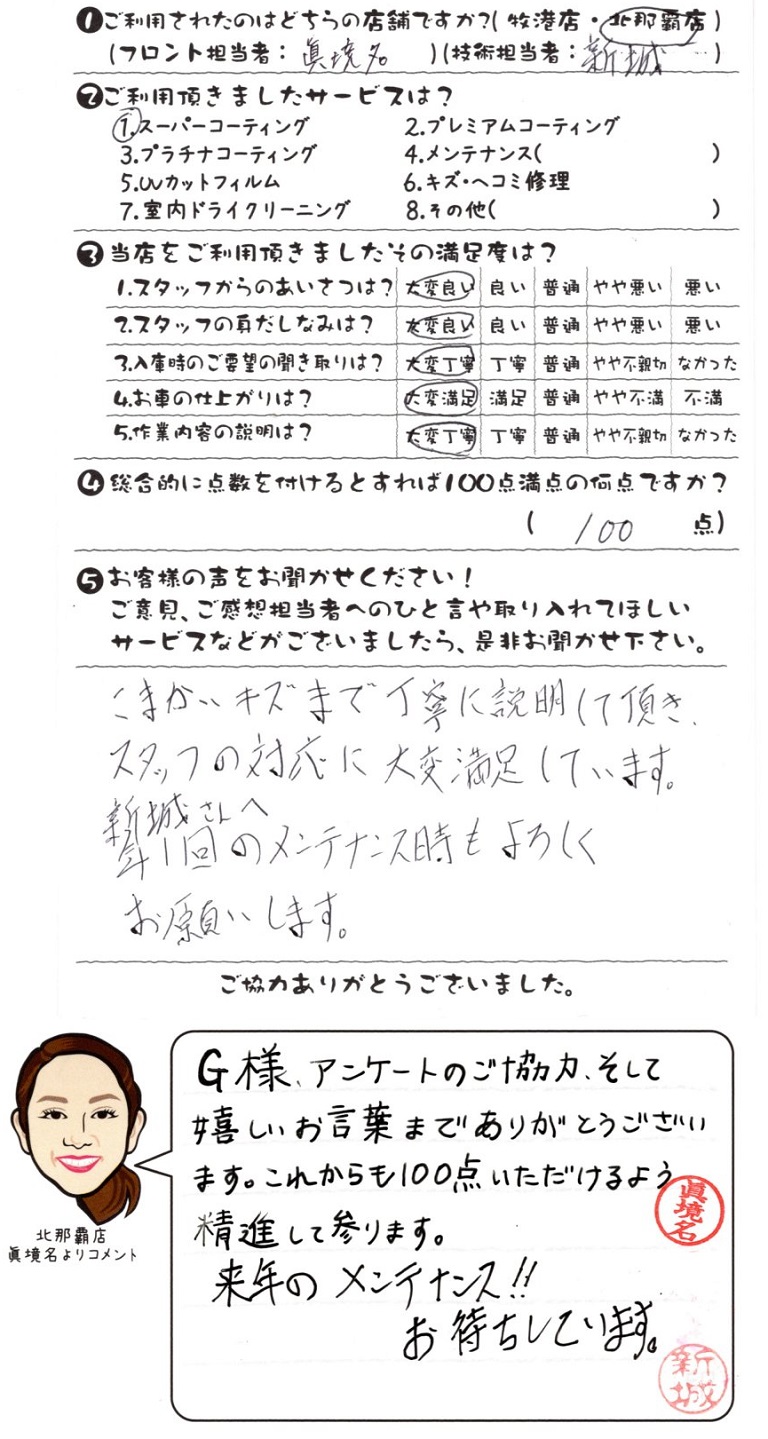 ❶ご利用されたのはどちらの店舗ですか?(牧港店・北那覇店)
(フロント担当者: 眞境名 )(技術担当者: 新城 )
❷ご利用頂きましたサービスは?
1.スーパーコーティング 2.プレミアムコーティング
3.プラチナコーティング 4.メンテナンス( )
5.UVカットフィルム 6.キズ・ヘコミ修理
7.室内ドライクリーニング 8.その他( )
❸当店をご利用頂きましたその満足度は?
1.スタッフからのあいさつは? 大変良い 良い 普通 やや悪い 悪い
2.スタッフの身だしなみは? 大変良い 良い 普通 やや悪い 悪い
3.入庫時のご要望の聞き取りは? 大変丁寧 丁寧 普通 やや不親切 なかった
4.お車の仕上がりは? 大変満足 満足 普通 やや不満 不満
5.作業内容の説明は? 大変丁寧 丁寧 普通 やや不親切 なかった
❹総合的に点数を付けるとすれば100点満点の何点ですか?
( 100 点)
❺お客様の声をお聞かせください!
ご意見、ご感想担当者へのひと言や取り入れてほしい
サービスなどがございましたら、是非お聞かせ下さい。
こまかいキズまで丁寧に説明して頂き、
スタッフの対応に大変満足しています。
新城さんへ
年1回のメンテナンス時もよろしく
お願いします。
ご協力ありがとうございました。
G様、アンケートのご協力、そして
嬉しいお言葉までありがとうござい
ます。これからも100点いただけるよう
精進して参ります。
眞境名
来年のメンテナンス!!
お待ちしています。
新城
北那覇店
眞境名よりコメント